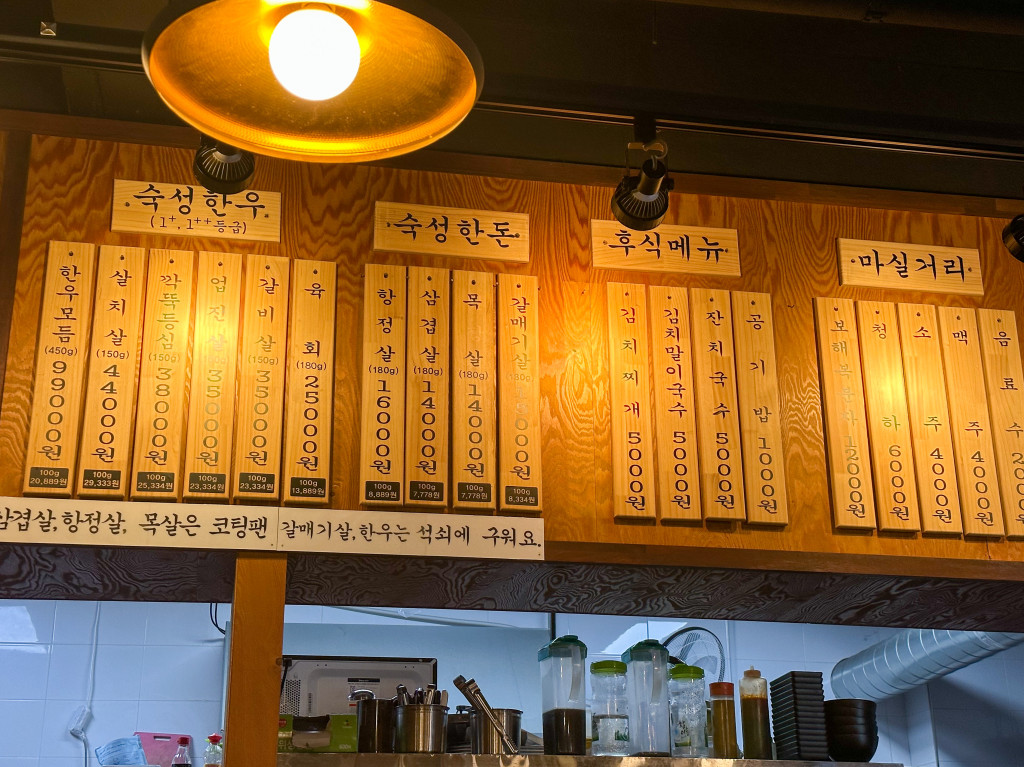 숙성한우
(1⁺.1⁺⁺등급)
한우모듬 (450g) 99000원
100g 20,889원
살치살 (150g) 44000원
100g 29,333원
깍뚝등심 (150g) 38000원
100g 25,334원
업진살 (150g) 35000원
100g 23,334원
갈비살 (150g) 35000원
100g 23,334원
육회 (180g) 25000원
100g 13,889원
숙성한돈
항정살 (180g) 16000원
100g 8,889원
삼겹살 (180g) 14000원
100g 7,778원
목살 (180g) 14000원
100g 7,778원
갈매기살 (180g) 15000원
100g 8,334원
후식메뉴
김치찌개 5000원
김치말이국수 5000원
잔치국수 5000원
공기밥 1000원
마실거리
보해복분자 12000원
청하 6000원
소주 4000원
맥주 4000원
음료수
삼겹살,항정살, 목살은 코팅팬 갈매기살,한우는 석쇠에 구워요.